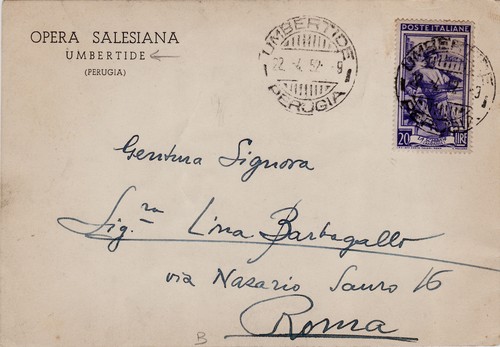 OPERA SALESIANA
UMBERTIDE
(PERUGIA)
UMBERTIDE
22.-4.52.-9
PERUGIA
POSTE ITALIANE
UMBERTIDE
20 LIRE
Gentma Signora
Sig.ra Lina Barbagallo
via Nasario Sauro 16
Roma
B